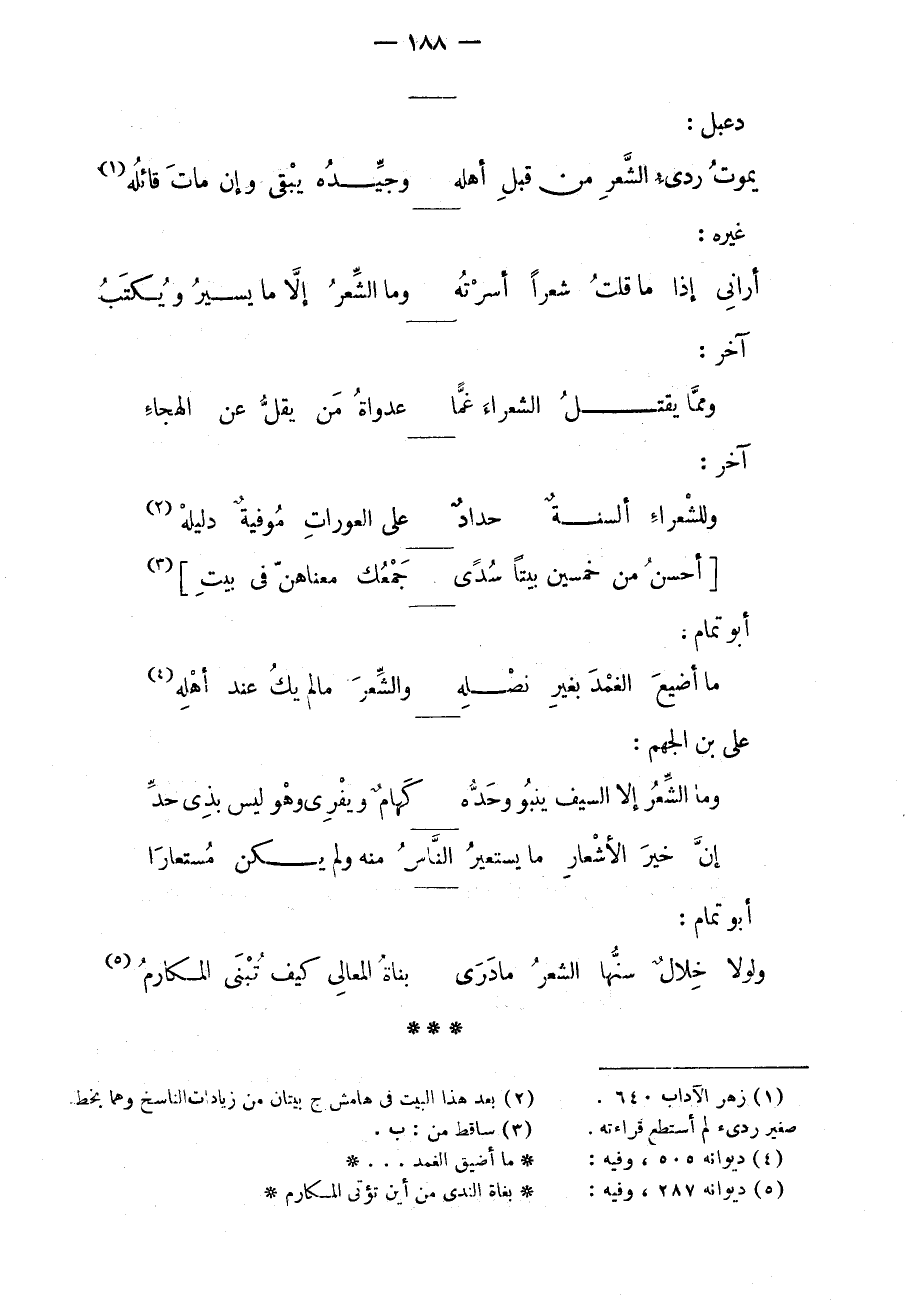 — ١٨٨ —
دعبل :
يموتُ ردىء الشَّعرِ من قبلِ أهله وجيِّدُه يبْقى وإن ماتَ قائلُه(١)
غيره :
أرانِى إذا ما قلتُ شعراً أسرْتهُ وما الشِّعرُ إلَّا ما يسيرُ ويُكتَبُ
آخر :
وممَّا يقتلُ الشعراءَ غمًّا عدواةُ مَن يقلُّ عن الهجاءِ
آخر :
وللشْعراءِ ألسنةٌ حدادٌ على العوراتِ مُوفيةٌ دليلهْ(٢)
[ أحسنُ من خمسين بيتاً سُدًى جَمْعُك معناهنّ فى بيتِ ](٣)
أبو تمام :
ما أضيعَ الغمْدَ بغيرِ نصْلِهِ والشِّعرَ مالم يكُ عند أهْلِهِ(٤)
على بن الجهم :
وما الشِّعْرُ إلا السيف ينبُو وحَدُّه كَهامٌ ويفْرِى وهْو ليس بذِى حدِّ
إنَّ خيرَ الأشْعارِ ما يستعيرُ النَّاسُ منه ولم يكن مُستعارَا
أبو تمام :
ولولا خِلالٌ سنُّها الشعرُ مادَرَى بناةُ المعالِى كيف تُبْنَى المكارمُ(٥)
***
(١) زهر الآداب ٦٤٠ . (٢) بعد هذا البيت فى هامش ج بيتان من زيادات الناسخ وهما بخط
صغير ردىء لم أستطع قراءته . (٣) ساقط من : ب .
(٤) ديوانه ٥٠٥ ، وفيه : * ما أضيق الغمد . . . *
(٥) ديوانه ٢٨٧ ، وفيه : * بغاة الندى من أين تؤتى المكارم *